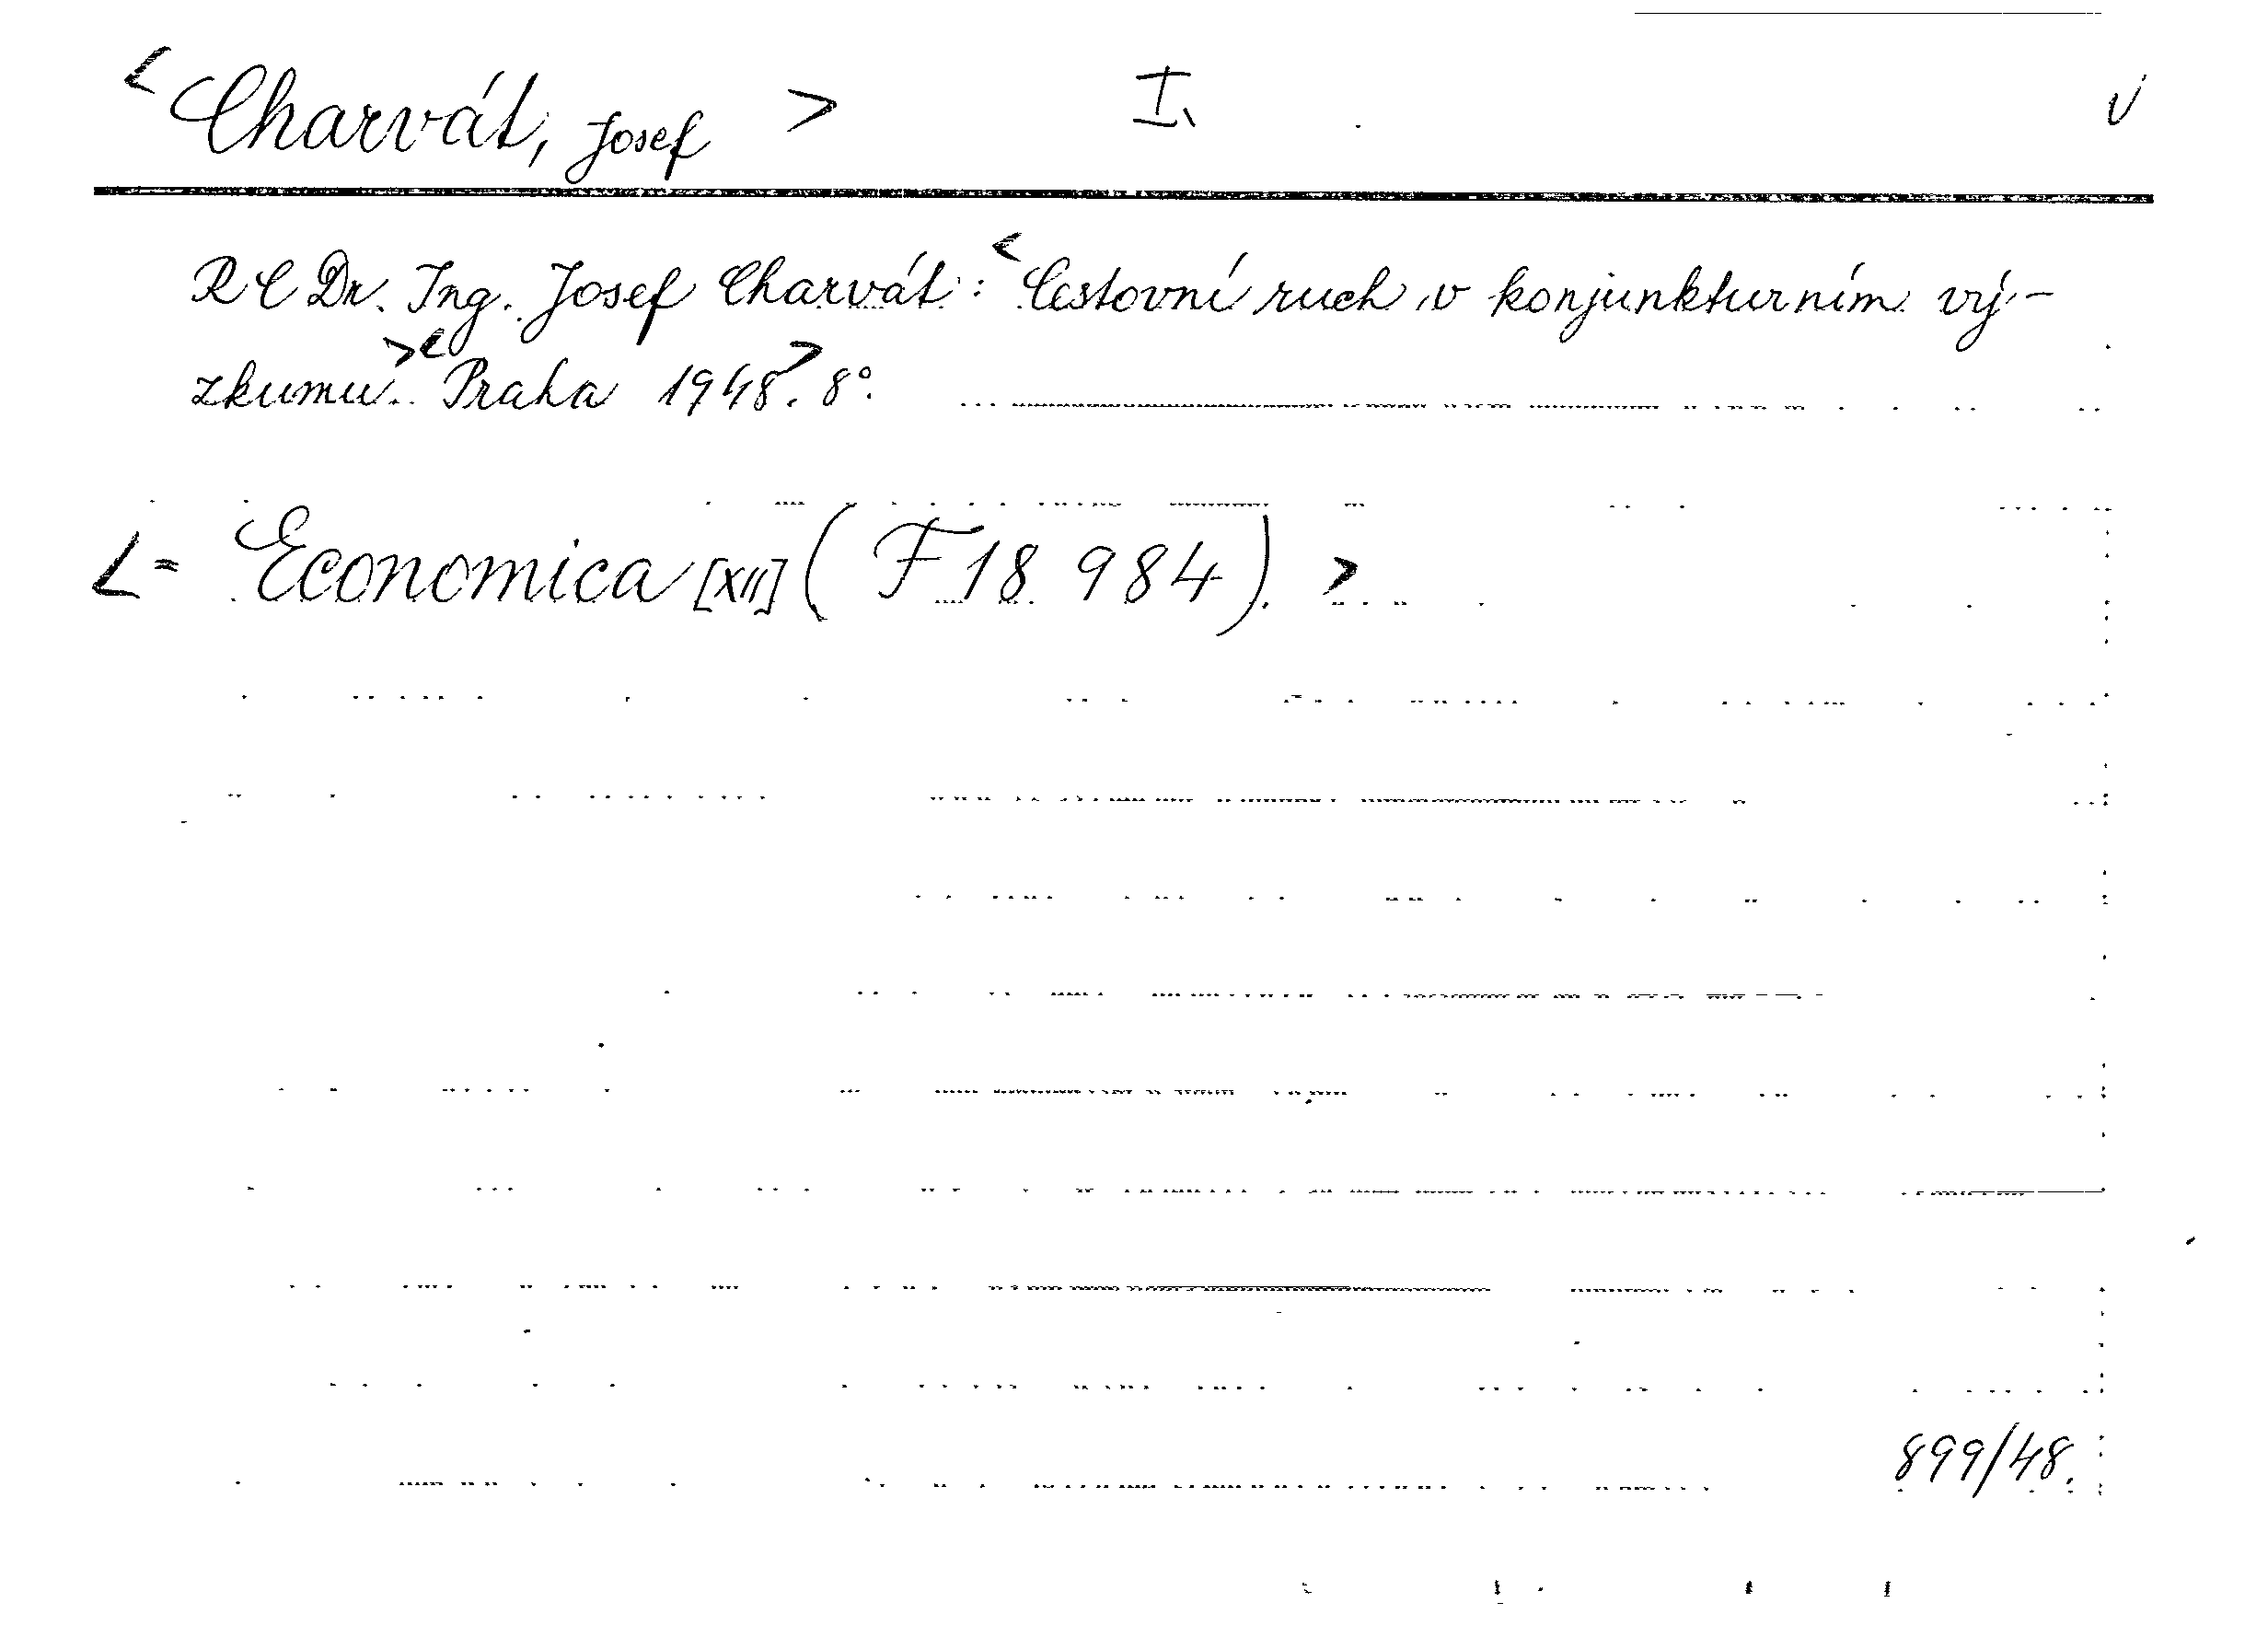 < Charvát, Josef > I. v
R C Dr. Ing. Josef Charvát: < Cestovní ruch v konjunkturním vý-
zkumu. > < Praha 1948 >. 8°.
< = Economica [XII] ( F 18 984 ). >
899/48.